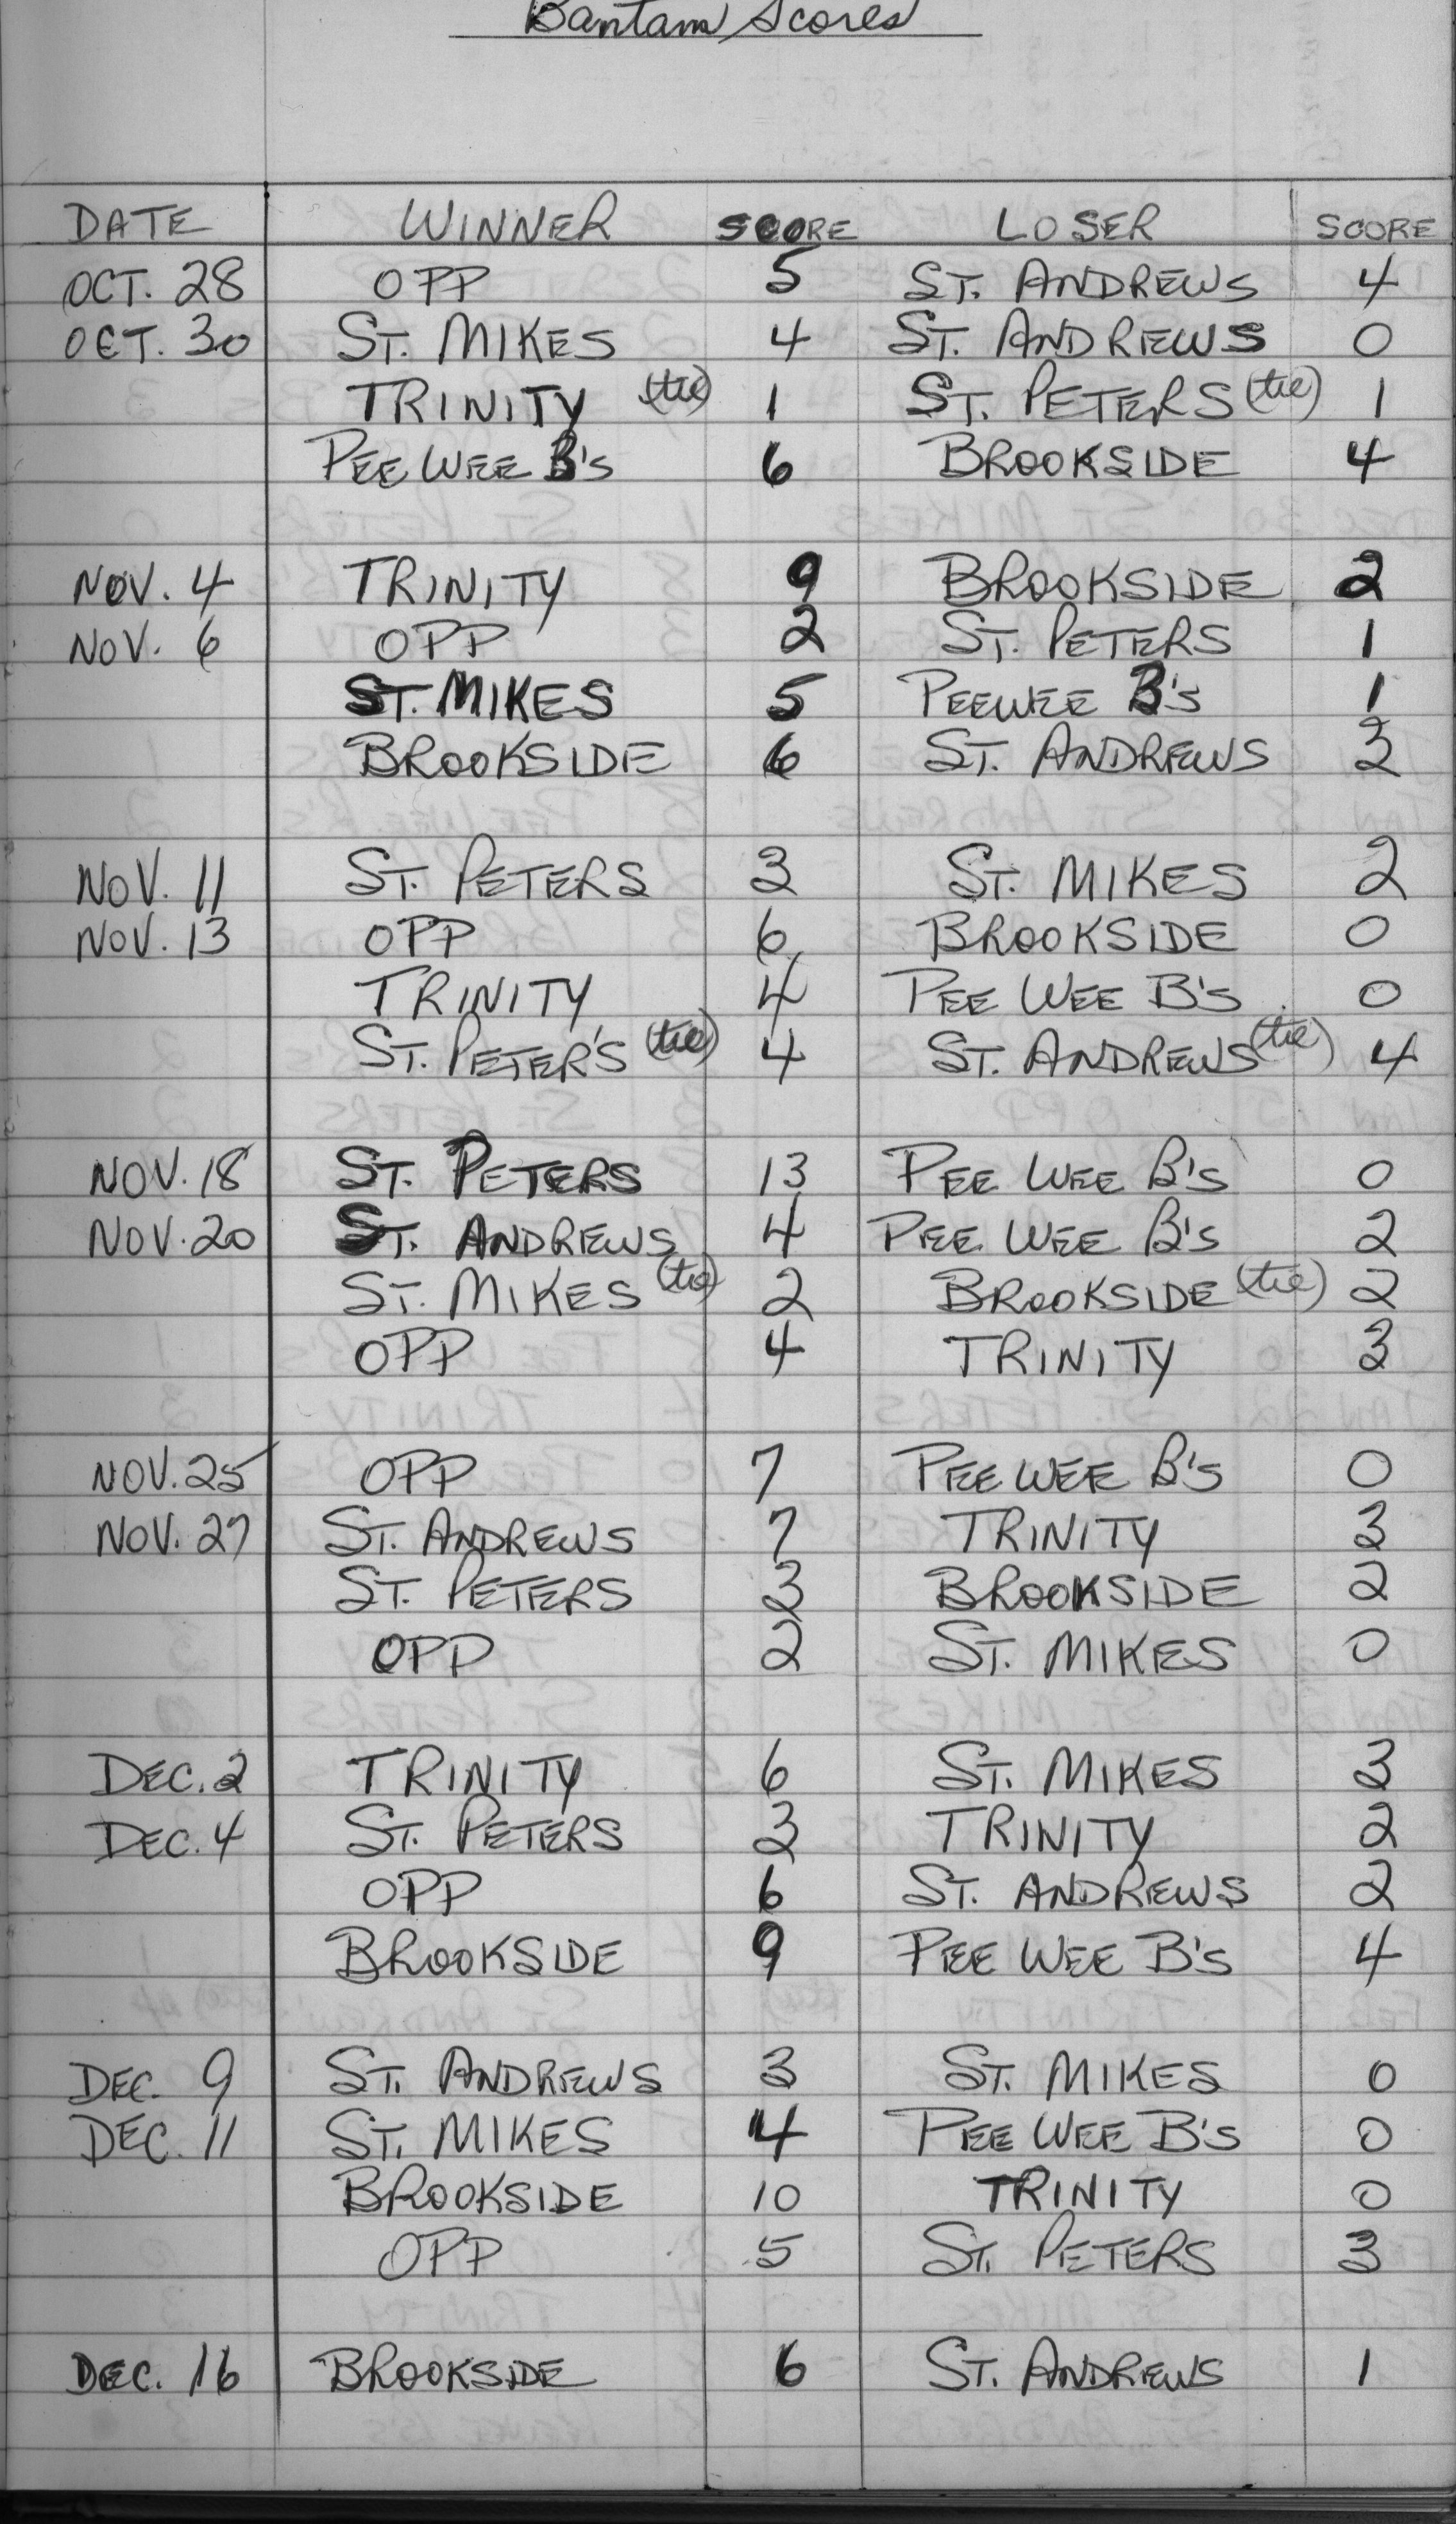 Bantam Scores
DATE WINNER SCORE LOSER SCORE
OCT. 28 OPP 5 ST. ANDREWS 4
OCT. 30 ST. MIKES 4 ST. ANDREWS 0
TRINITY (tie) 1 ST. PETERS (tie) 1
PEE WEE B's 6 BROOKSIDE 4
NOV. 4 TRINITY 9 BROOKSIDE 2
NOV. 6 OPP 2 ST. PETERS 1
ST. MIKES 5 PEEWEE B's 1
BROOKSIDE 6 ST. ANDREWS 3
NOV. 11 ST. PETERS 3 ST. MIKES 2
NOV. 13 OPP 6 BROOKSIDE 0
TRINITY 4 PEE WEE B's 0
ST. PETER'S (tie) 4 ST. ANDREWS (tie) 4
NOV. 18 ST. PETERS 13 PEE WEE B's 0
NOV. 20 ST. ANDREWS 4 PEE WEE B's 2
ST. MIKES (tie) 2 BROOKSIDE (tie) 2
OPP 4 TRINITY 3
NOV. 25 OPP 7 PEE WEE B's 0
NOV. 27 ST. ANDREWS 7 TRINITY 3
ST. PETERS 3 BROOKSIDE 2
OPP 2 ST. MIKES 0
DEC. 2 TRINITY 6 ST. MIKES 3
DEC. 4 ST. PETERS 3 TRINITY 2
OPP 6 ST. ANDREWS 2
BROOKSIDE 9 PEE WEE B's 4
DEC. 9 ST. ANDREWS 3 ST. MIKES 0
DEC. 11 ST. MIKES 4 PEE WEE B's 0
BROOKSIDE 10 TRINITY 0
OPP 5 ST. PETERS 3
DEC. 16 BROOKSIDE 6 ST. ANDREWS 1